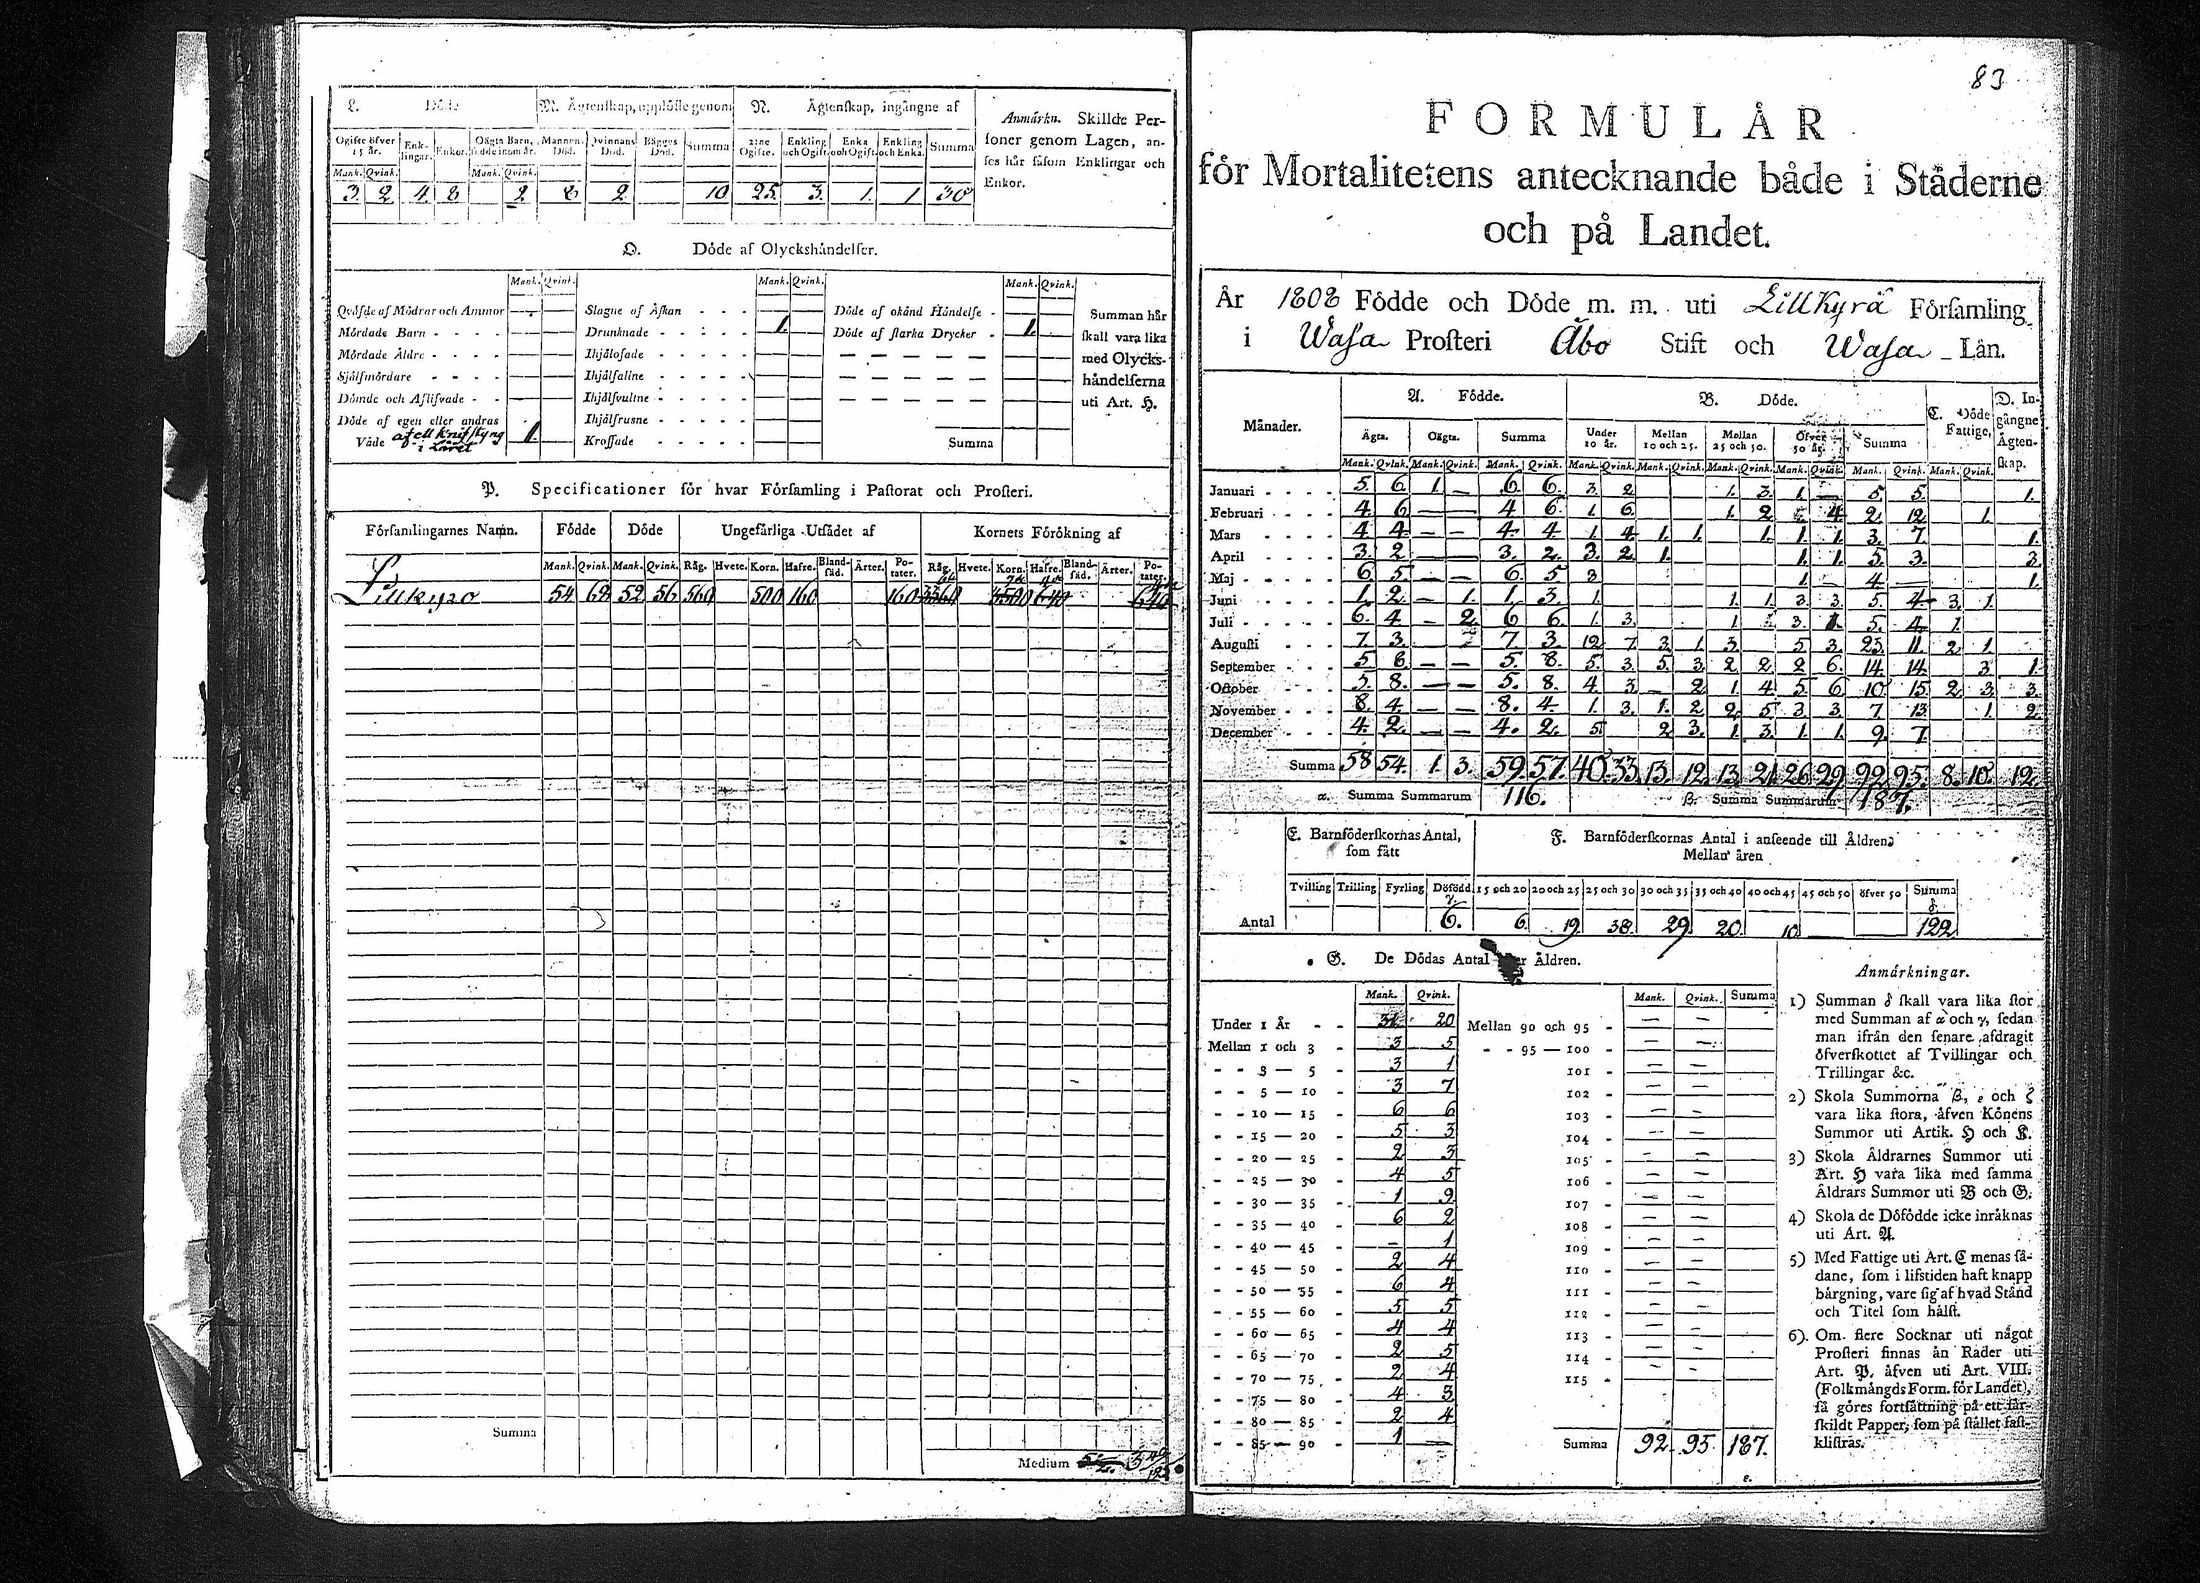 L. Döde
M. Ägtenſkap, upplöſte genom
N. Ägtenſkap, ingångne af
Anmärkn. Skillde Perſoner genom Lagen, anſes här ſåſom Enklingar och Enkor.
Ogifte öfver 15 år. Enklingar. Enkor. Oägta Barn, födde inom år. Mannens Död. Qvinnans Död. Bägges Död. Summa 2:ne Ogifte. Enkling och Ogift. Enka och Ogift. Enkling och Enka. Summa
Mank. Qvink. Mank. Qvink.
3. 2. 4. 8. 2. 8. 2. 10. 25. 3. 1. 1. 30
O. Döde af Olyckshändelſer.
Mank. Qvink. Mank. Qvink. Mank. Qvink.
Qväfde af Mödrar och Ammor
Slagne af Åſkan
Döde af okänd Händelſe
Mördade Barn
Drunknade 1.
Döde af ſtarka Drycker 1.
Mördade Äldre
Ihjälofade
Sjålfmördare
Ihjälfallne
Dömde och Aflifvade
Ihjälfvultne
Döde af egen eller andras Våde af ett knifstyng i Låret 1.
Ihjälfrusne
Kroſſade
Summa
Summan här ſkall vara lika med Olyckshändelſerna uti Art. H.
P. Specificationer för hvar Förſamling i Paſtorat och Proſteri.
Förſamlingarnes Namn. Födde Döde Ungefärliga Utſädet af Kornets Förökning af
Mank. Qvink. Mank. Qvink. Råg. Hvete. Korn. Hafre. Blandſäd. Ärter. Potater. Råg. Hvete. Korn. Hafre. Blandſäd. Ärter. Potater.
Lillkyro 54 62 52 56 560 500 160 160 3360 3500 640 640
Summa
Medium
83
FORMULÄR
för Mortalitetens antecknande både i Städerne
och på Landet.
År 1808 Födde och Döde m. m. uti Lillkyrå Förſamling
i Waſa Proſteri Åbo Stift och Waſa Län.
Månader. A. Födde. B. Döde. C. Döde Fattige. D. Ingångne Ägtenſkap.
Ägta. Oägta. Summa Under 10 år. Mellan 10 och 25. Mellan 25 och 50. Öfver 50 år. Summa
Mank. Qvink. Mank. Qvink. Mank. Qvink. Mank. Qvink. Mank. Qvink. Mank. Qvink. Mank. Qvink. Mank. Qvink. Mank. Qvink.
Januari 5. 6. 1. — 6 6. 3. 2. 1. 3. 1. — 5. 5. 1.
Februari 4. 6. — — 4 6. 1. 6. 1. 2 4. 2. 12. 1.
Mars 4 4 — — 4. 4. 1. 4. 1. 1. 1. 1. 1. 3. 7. 1.
April 3. 2 — — 3. 2. 3. 2. 1. 1. 1. 5. 3. 3.
Maj 6 5 — — 6. 5 3 1. — 4. — 1.
Juni 1. 2 — 1. 1. 3. 1. 1. 1. 3. 3. 5. 4. 3. 1.
Juli 6. 4. — 2. 6 6. 1. 3. 1. 3. 1. 5. 4. 1.
Auguſti 7. 3. 7. 3. 12. 7. 3. 1. 3. 5. 3. 23. 11. 2. 1.
September 5 8. — — 5. 8. 5. 3. 5. 3. 2 2. 2 6. 14. 14. 3. 1.
October 5. 8. — — 5. 8. 4. 3. — 2. 1. 4. 5. 6. 10. 15. 2. 3. 3.
November 8. 4. — — 8. 4. 1. 3. 1. 2. 2. 5. 3. 3. 7. 13. 1. 2.
December 4. 2. — — 4. 2. 5. 2 3. 1. 3. 1. 1. 9. 7.
Summa 58 54. 1. 3. 59. 57. 40. 33. 13. 12. 13. 21. 26. 29. 92. 95. 8. 10. 12.
α. Summa Summarum 116. β. Summa Summarum 187.
E. Barnföderſkornas Antal, ſom fått
F. Barnföderſkornas Antal i anſeende till Åldren. Mellan åren
Tvilling Trilling Fyrling Döfödd. γ. 15 och 20 20 och 25 25 och 30 30 och 35 35 och 40 40 och 45 45 och 50 öfver 50 Summa δ
Antal 6. 6. 19. 38. 29. 20. 10. — 122
G. De Dödas Antal Åldren.
Mank. Qvink. Mank. Qvink. Summa
Under 1 År 31. 20 Mellan 90 och 95 — —
Mellan 1 och 3 3 5 95 — 100 — —
3 — 5 3 1 101 — —
5 — 10 3 7 102 — —
10 — 15 6 6 103 — —
15 — 20 5 3 104 — —
20 — 25 2 3 105 — —
25 — 30 4 5 106 — —
30 — 35 1 9 107 — —
35 — 40 6 2 108 — —
40 — 45 — 1 109 — —
45 — 50 2 4 110 — —
50 — 55 6 4 111 — —
55 — 60 5 5 112 — —
60 — 65 4 4 113 — —
65 — 70 2 5 114 — —
70 — 75 2 4 115
75 — 80 4 3
80 — 85 2 4
85 — 90 1 —
Summa 92 95 187.
e.
Anmärkningar.
1) Summan δ ſkall vara lika ſtor
med Summan af α och γ, ſedan
man ifrån den ſenare afdragit
öfverſkottet af Tvillingar och
Trillingar &c.
2) Skola Summorna β, ε och ζ
vara lika ſtora, äfven Könens
Summor uti Artik. H och K.
3) Skola Åldrarnes Summor uti
Art. H vara lika med ſamma
Åldrars Summor uti B och G.
4) Skola de Döfödde icke inräknas
uti Art. A.
5) Med Fattige uti Art. C menas ſådane, ſom i lifstiden haft knapp
bärgning, vare ſig af hvad Stånd
och Titel ſom hälſt.
6) Om flere Socknar uti något
Proſteri finnas än Råder uti
Art. P, äfven uti Art. VIII.
(Folkmängds Form. för Landet),
få göres fortſättning på ett ſärſkildt Papper, ſom på ſtället faſtkliſtras.